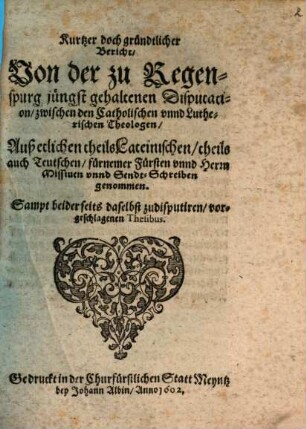 2
Kurtzer doch gründtlicher
Bericht/
Von der zu Regen-
spurg jüngst gehaltenen Disputati-
on/zwischen den Catholischen vnnd Luthe-
rischen Theologen/
Auß etlichen theils Lateinischen/theils
auch Teutschen/fürnemer Fürsten vnnd Herrn
Missiuen vnnd Sendt Schreiben
genommen.
Sampt beiderseits daselbst zudisputiren/vor-
geschlagenen Thesibus.
Gedruckt in der Churfürstlichen Statt Meyntz
bey Johann Albin/Anno 1602.